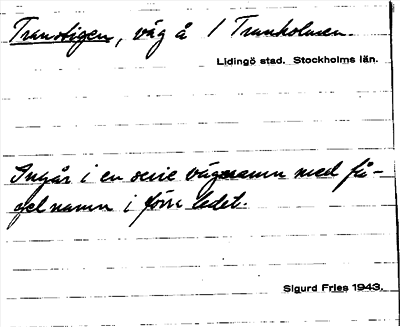 Transtigen, väg å 1 Tranholmen.
Lidingö stad. Stockholms län.
Ingår i en serie vägnamn med få-
gelnamn i förra ledet.
Sigurd Fries 1943.